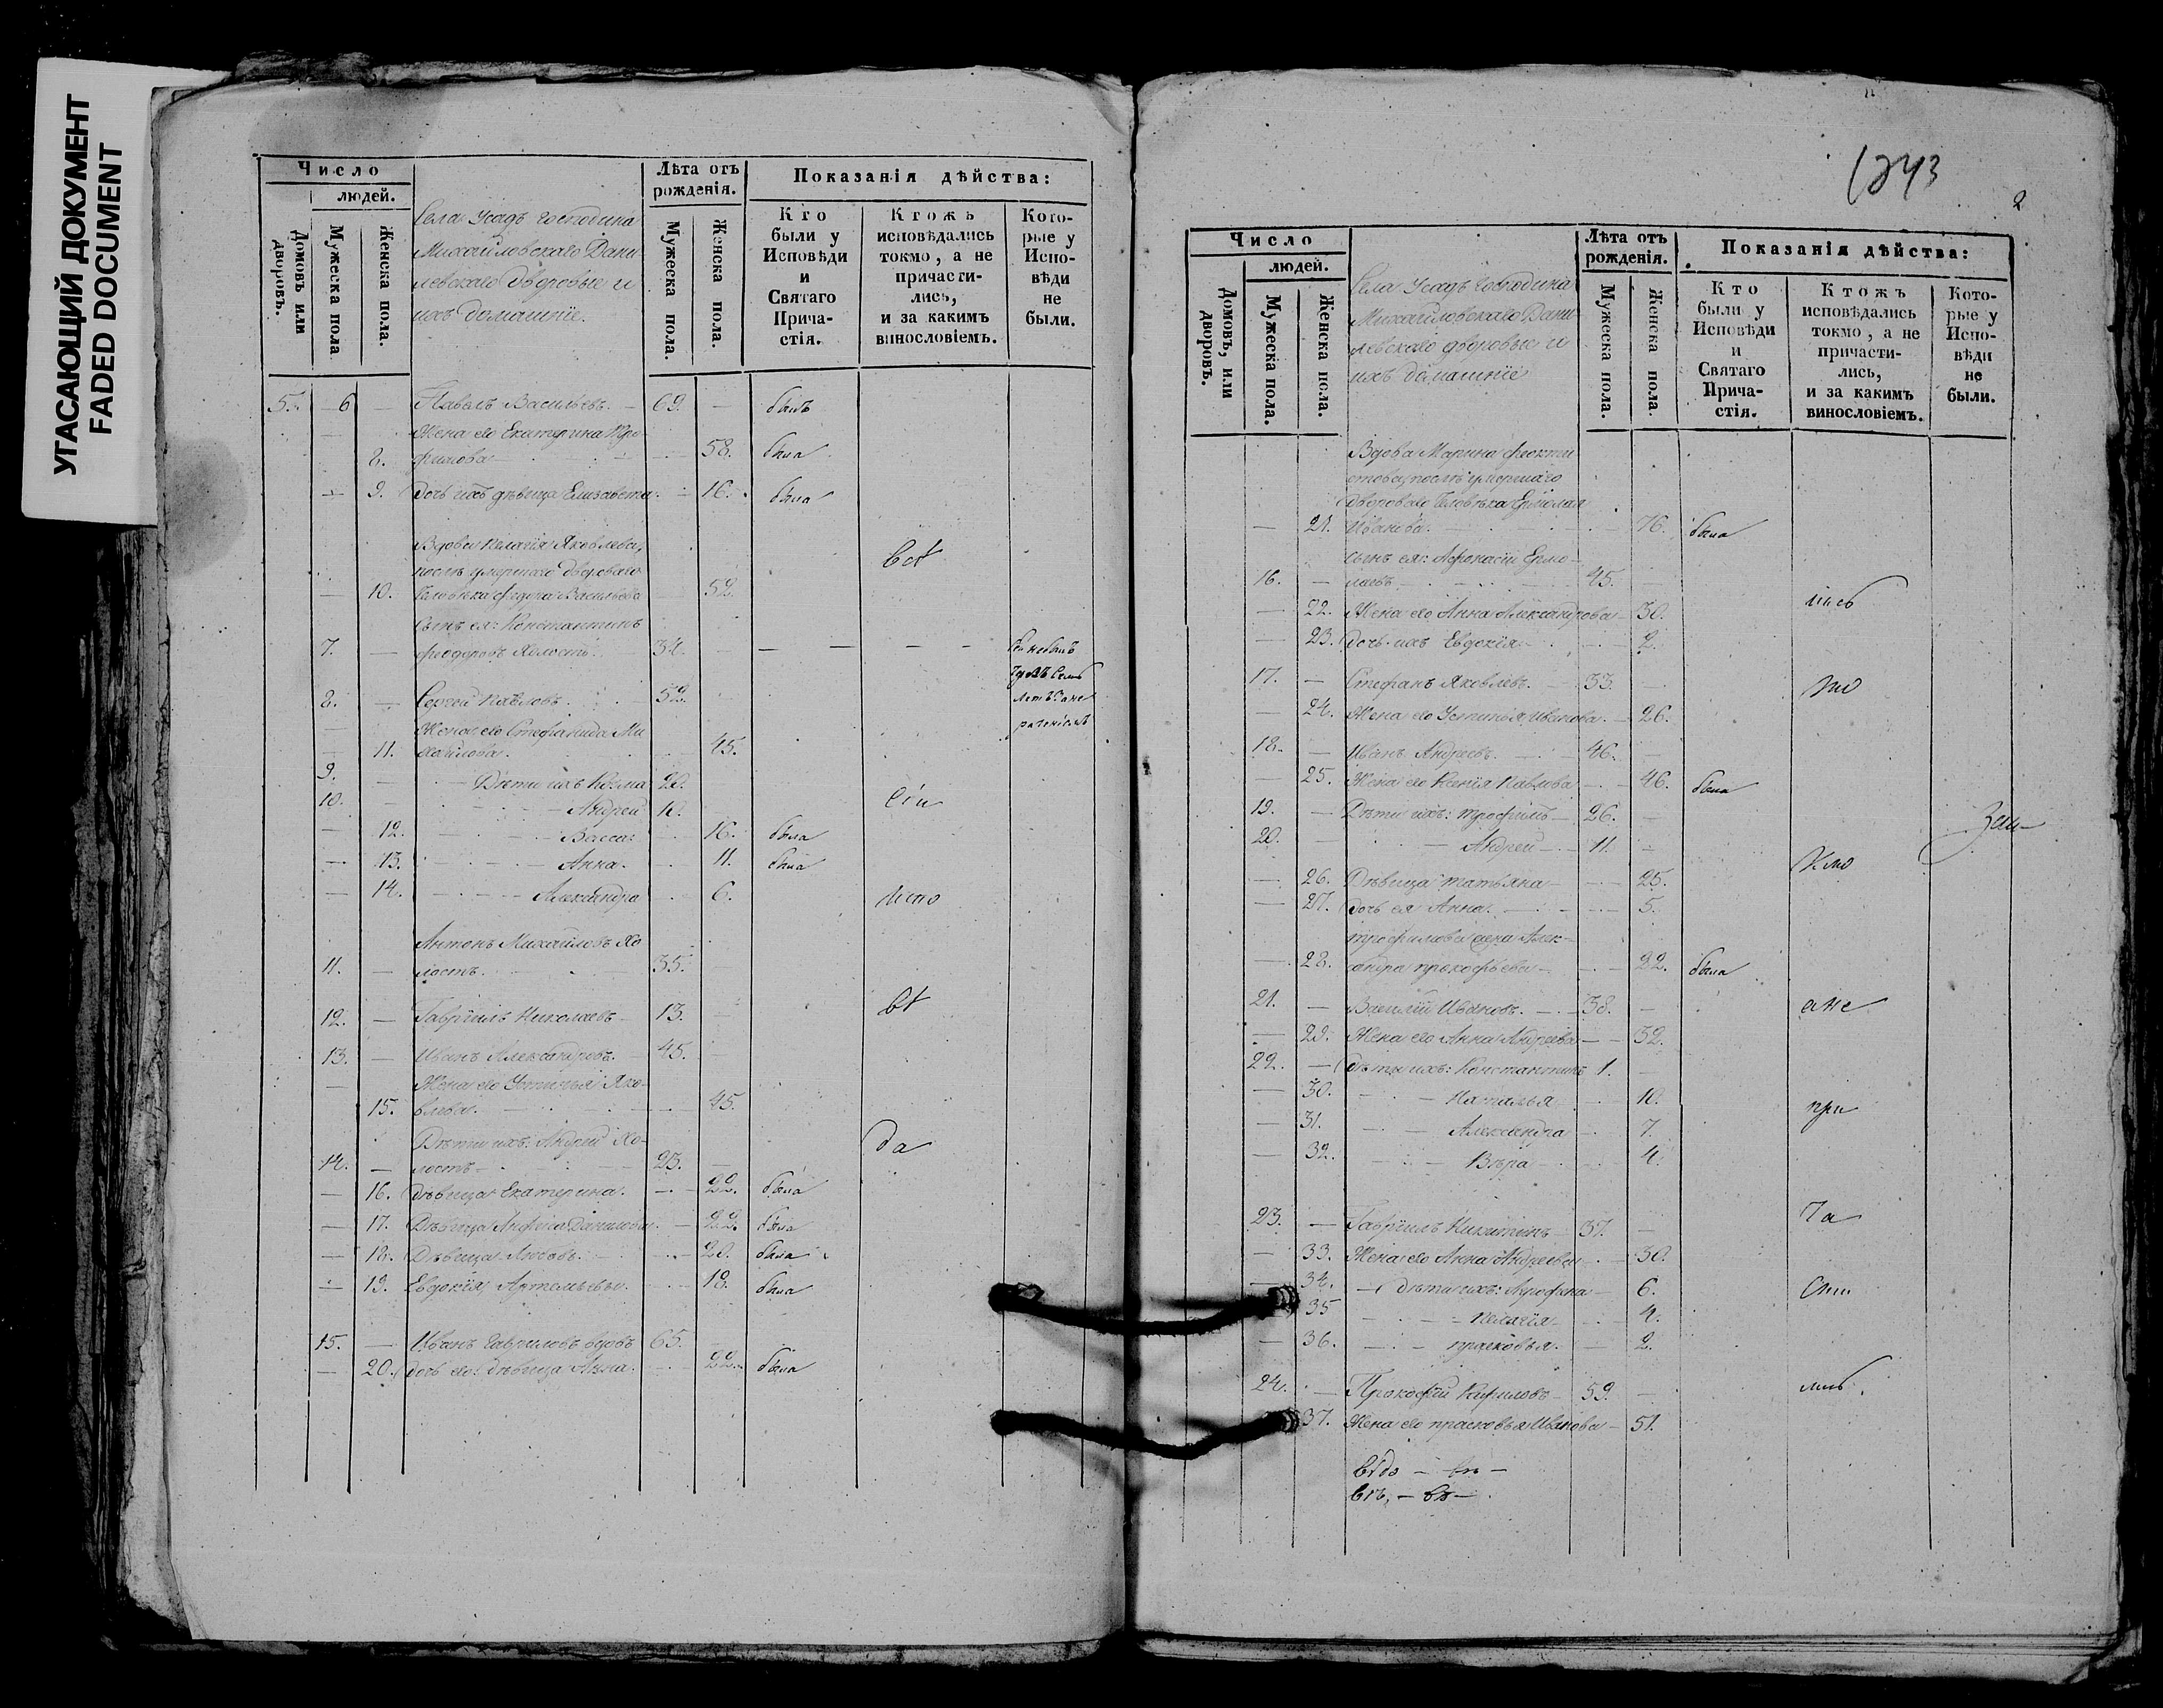 УГАСАЮЩИЙ ДОКУМЕНТ
FADED DOCUMENT
Число
людей.
Домовъ или дворовъ.
Мужеска пола
Женска пола.
Села Усадъ господина
Михайловскаго Дани
левскаго дворовые и
ихъ домашніе.
Лѣта отъ рожденія.
Мужеска пола.
Женска пола.
Показанія дѣйства:
Кто были у Исповѣди и Святаго Прича-стія.
Ктожъ исповѣдались токмо, а не причасти-лись, и за какимъ винословіемъ.
Кото-рые у Испо-вѣди не были.
5. 6 — Павелъ Васильевъ. — 69. — былъ
Жена его Екатерина Тро
8. фимова 58. была
— 9. Дочь ихъ дѣвица Елизавета. — 16. была
Вдова Пелагія Яковлева,
послѣ умершаго двороваго
— 10. человѣка Федора Васильева 52.
всѣ
Сынъ ея: Константинъ
7. — Феодоровъ холостъ. 34. — — — —
8. — Сергей Павловъ. 52.
Жена его Стефанида Ми
— 11. хайлова. 45.
9. — Дѣти ихъ Козма 20.
10. — Андрей 10.
сіи
— 12. Васса 16. была
— 13. Анна. 11. была
— 14. Александра 6.
испо
Антонъ Михайловъ хо
11. — лостъ. 35.
12. — Гавріилъ Николаевъ — 13. —
вѣ
13. — Иванъ Александровъ. — 45. —
Жена его Устинья Яко-
15. влева. 45.
Дѣти ихъ: Андрей хо-
да
14. — лостъ 23. —
— 16. Дѣвица Екатерина. — 22. была
— 17. Дѣвица Анфиса Данилова. — 22. была
— 18. Дѣвица Любовь. 20. была
— 19. Евдокія Артемьева. — 18. была
15. — Иванъ Гавриловъ вдовъ 65.
— 20. Дочь его: дѣвица Анна. 22. была
1243
2
Число
людей.
Домовъ, или дворовъ.
Мужеска пола.
Женска пола.
Села Усадъ господина
Михайловскаго Дани-
левскаго дворовые и
ихъ домашніе
Лѣта отъ рожденія.
Мужеска пола.
Женска пола.
Показанія дѣйства:
Кто были у Исповѣди и Святаго Прича-стія.
Ктожъ исповѣдались токмо, а не причасти-лись, и за какимъ винословіемъ.
Кото-рые у Испо-вѣди не были.
Вдова Марина Феокти
стова, послѣ умершаго
двороваго человѣка Ермолая
— 21. Иванова. 76. была
Сынъ ея: Афонасій Ермо-
16. — лаевъ 45. —
лись
— 22. Жена его Анна Александрова — 30.
— 23. Дочь ихъ Евдокія — 2.
17. — Стефанъ Яковлевъ. — 33. —
то
— 24. Жена его Устинья Иванова. — 26.
18. — Иванъ Андреевъ. 46. —
— 25. Жена его Ксенія Павлова — 46. была
19. — Дѣти ихъ: Трофимъ — 26. —
20. — Андрей — 11. —
кмо
— 26. Дѣвица Татьяна — 25.
— 27. Дочь ея Анна. — 5.
Трофимова жена Алек-
— 28. сандра Прокофьева — 22. была
21. — Василій Ивановъ. — 38. —
а не
— 29. Жена его Анна Андреева — 32.
22. — Дѣти ихъ: Константинъ 1. —
— 30. Наталья 10.
при
— 31. Александра — 7.
— 32. Вѣра 4.
23. — Гавріилъ Никитинъ — 37. —
ча
— 33. Жена его Анна Андреева — 30.
— 34. — Дѣти ихъ: Агрофена — 6.
сти
35 Пелагія. 4.
— 36. Прасковья. — 2.
24. — Прокофій Кириловъ — 59. —
лись.
37. Жена его Прасковья Иванова — 51.